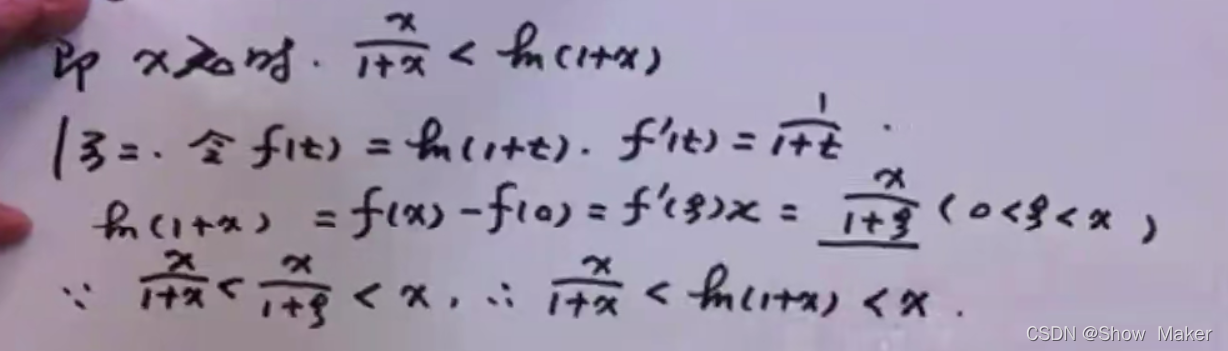 即 x>0时. x/(1+x) < ln(1+x)
证二. 令 f(t) = ln(1+t). f'(t) = 1/(1+t).
ln(1+x) = f(x) - f(0) = f'(ξ)x = x/(1+ξ) (0<ξ<x)
∵ x/(1+x) < x/(1+ξ) < x, ∴ x/(1+x) < ln(1+x) < x.
CSDN @Show Maker